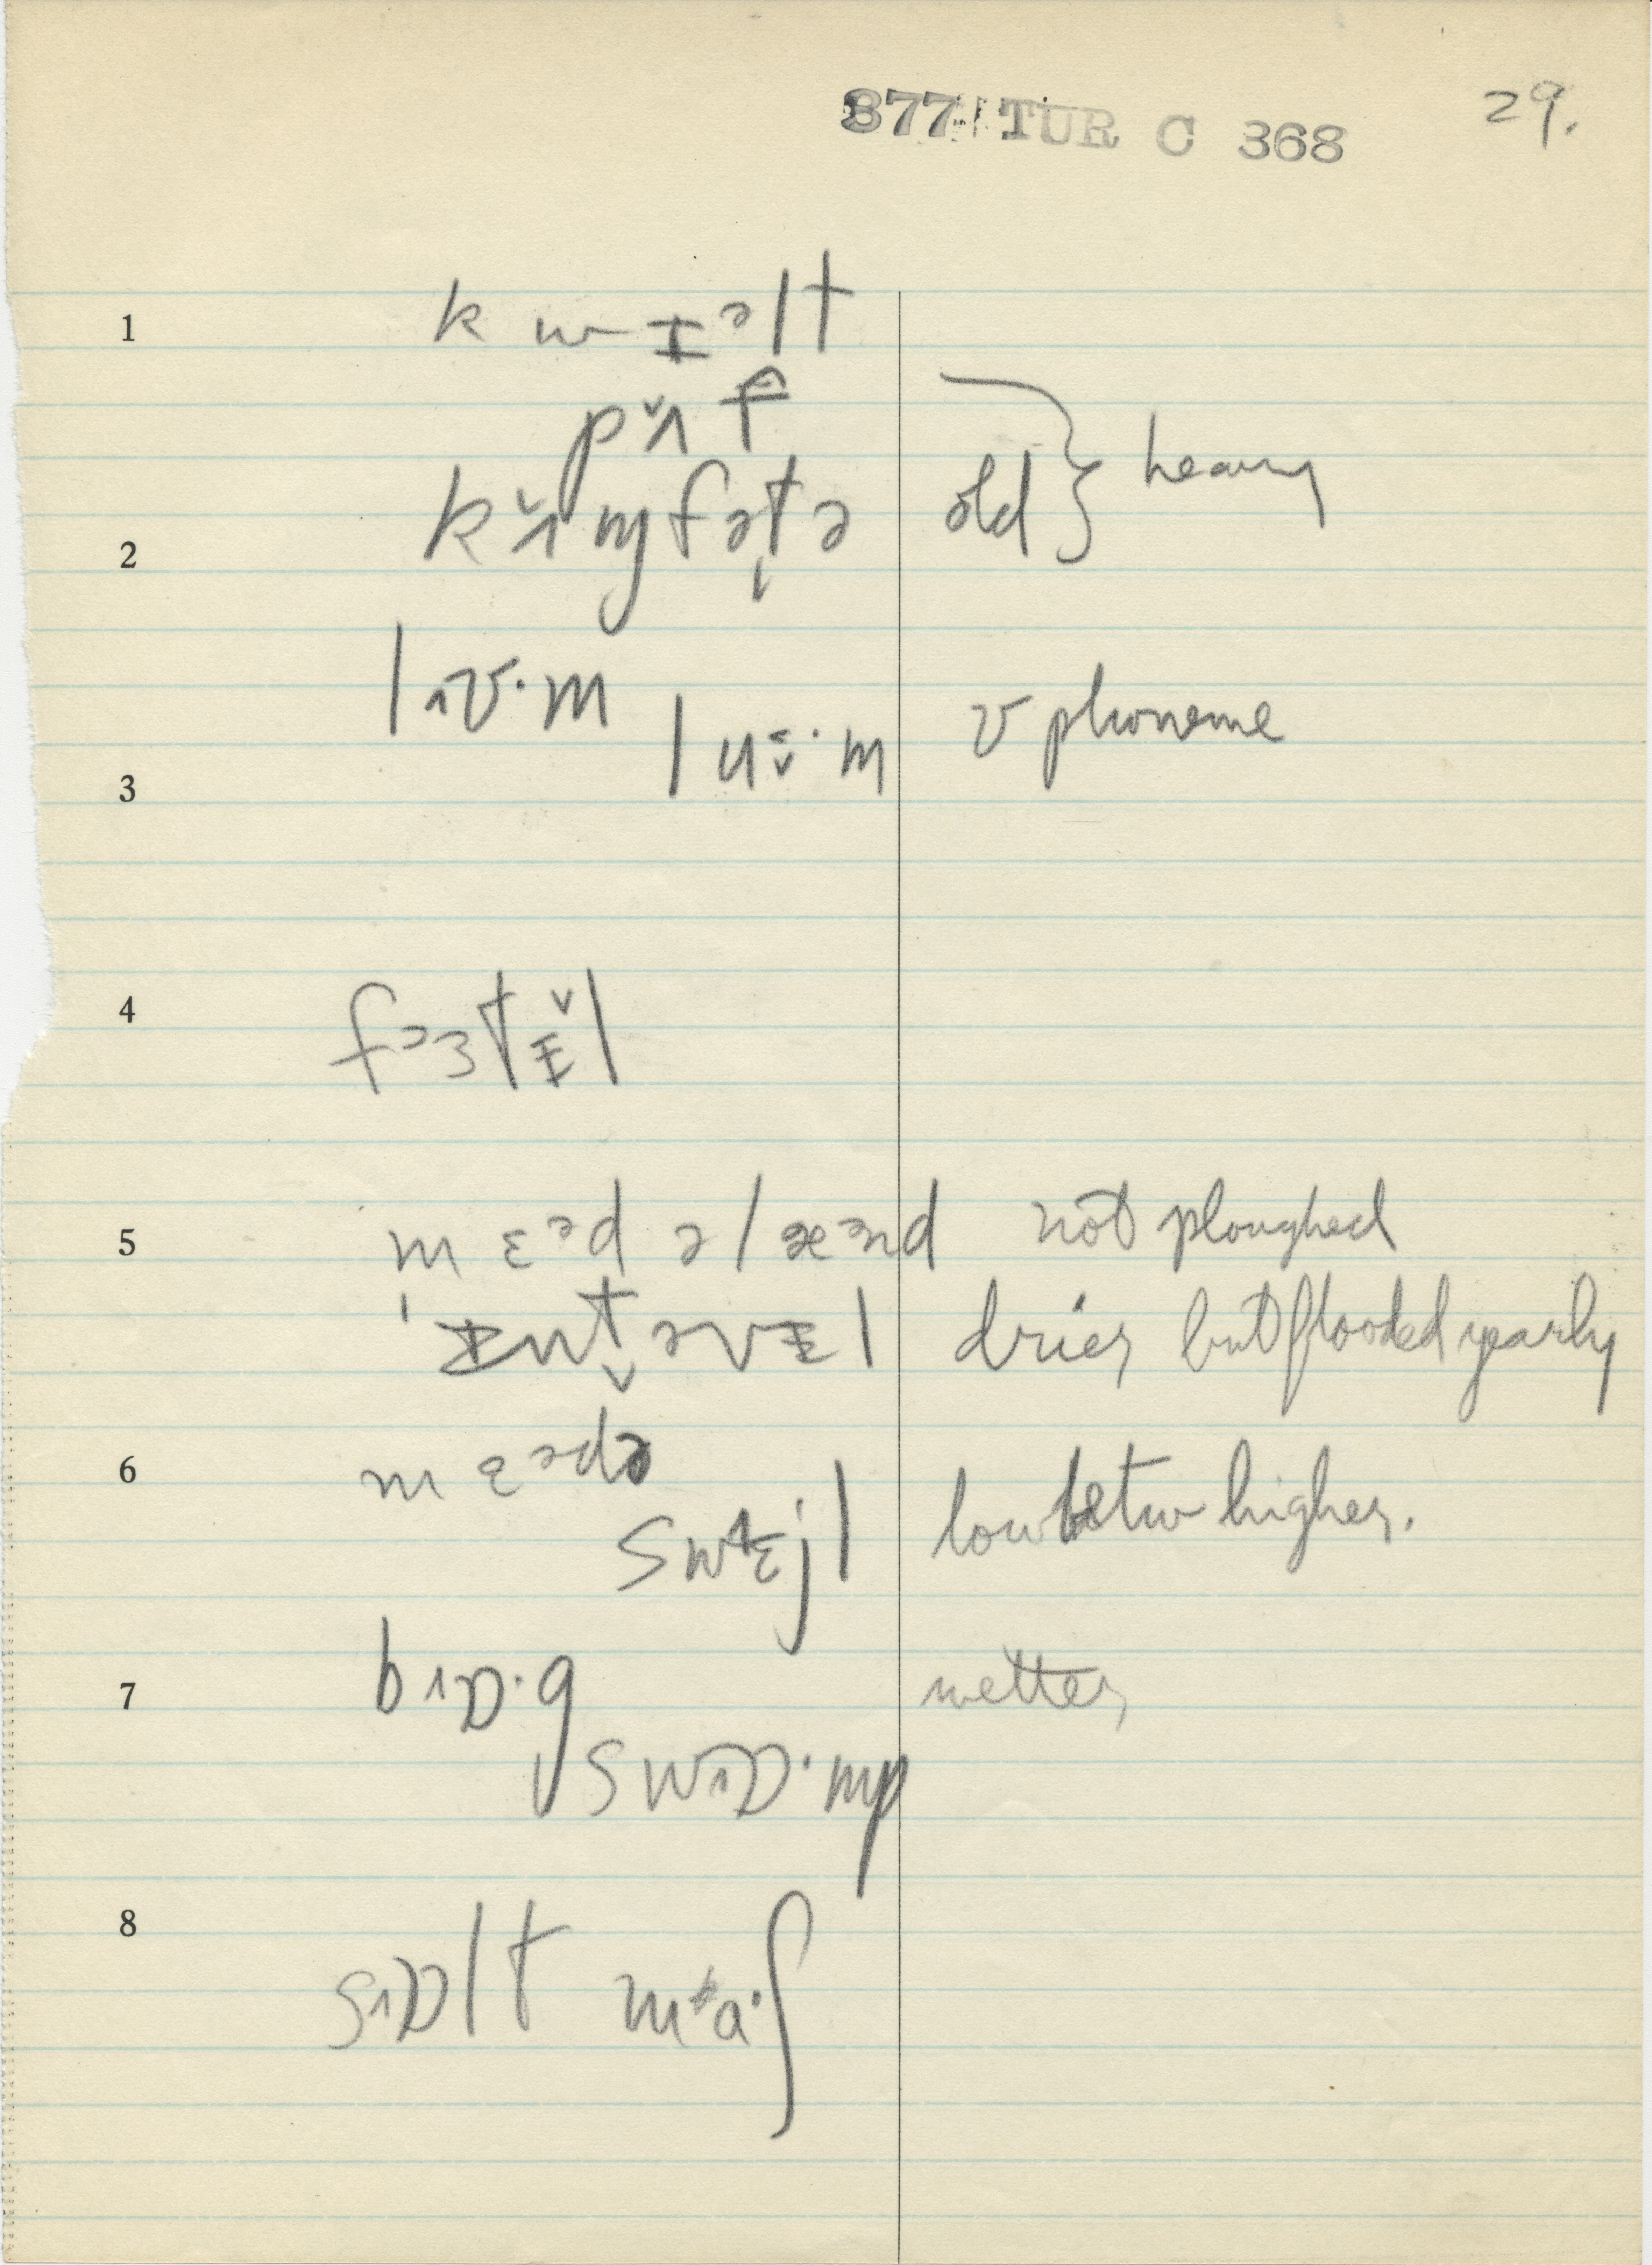 877 TUR C 368 29.
1 kwɪᵊlt
pʌ̆f
2 kʌ̆mfətə old } heavy
lɪʊ·m v phoneme
3 luʊ·m
4 fɔɜtɪ̆l
5 mɛᵊd əlæᵊnd not ploughed
ˈɪntəvɪl drier but flooded yearly
6 mɛᵊdə
swɛjl low betw higher.
7 bɒ·g wetter
swɒ·mp
8 sɒlt ma·ʃ